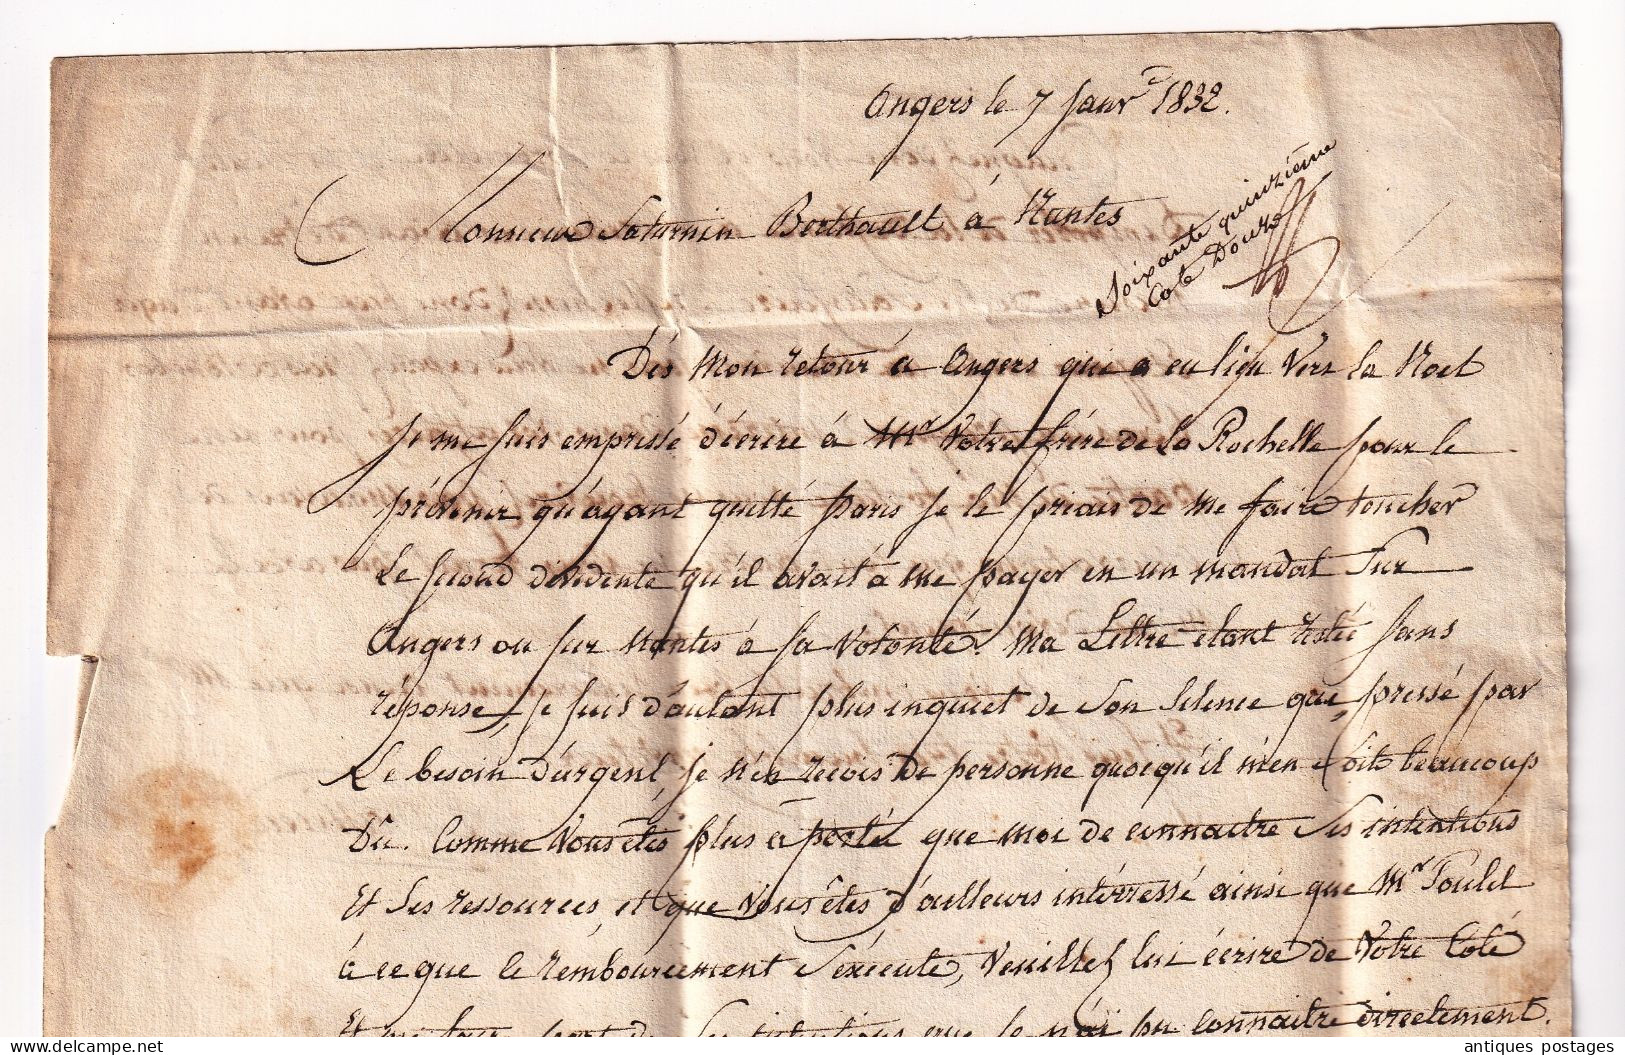 Angers le 7 Janvr 1832.
Monsieur Saturnin Berthault à Nantes
Soixante quinzième
Cote Douze
Dès Mon retour à Angers qui a eu lieu Vers la Noel
Je me suis empressé d'écrire à Mr Votre frère de La Rochelle pour le
prévenir qu'ayant quitté Paris je le priais de me faire toucher
Le second dividente qu'il avait à me payer en un mandat sur
Angers ou sur Nantes à sa Volonté. Ma Lettre étant restée sans
réponse, je suis d'autant plus inquiet de son silence que pressé par
Le besoin d'argent, je n'en recois de personne quoiqu'il m'en soit beaucoup
Dû. Comme Vous êtes plus à portée que moi de connaitre ses intentions
Et ses ressources, et que Vous êtes d'ailleurs intérressé ainsi que Mr Poulet
à ce que le rembourcement s'éxécute, Veuillez lui écrire de Votre Coté
Et me faire part de ses intentions que je n'ai pu Connaitre directement.
antiques postages